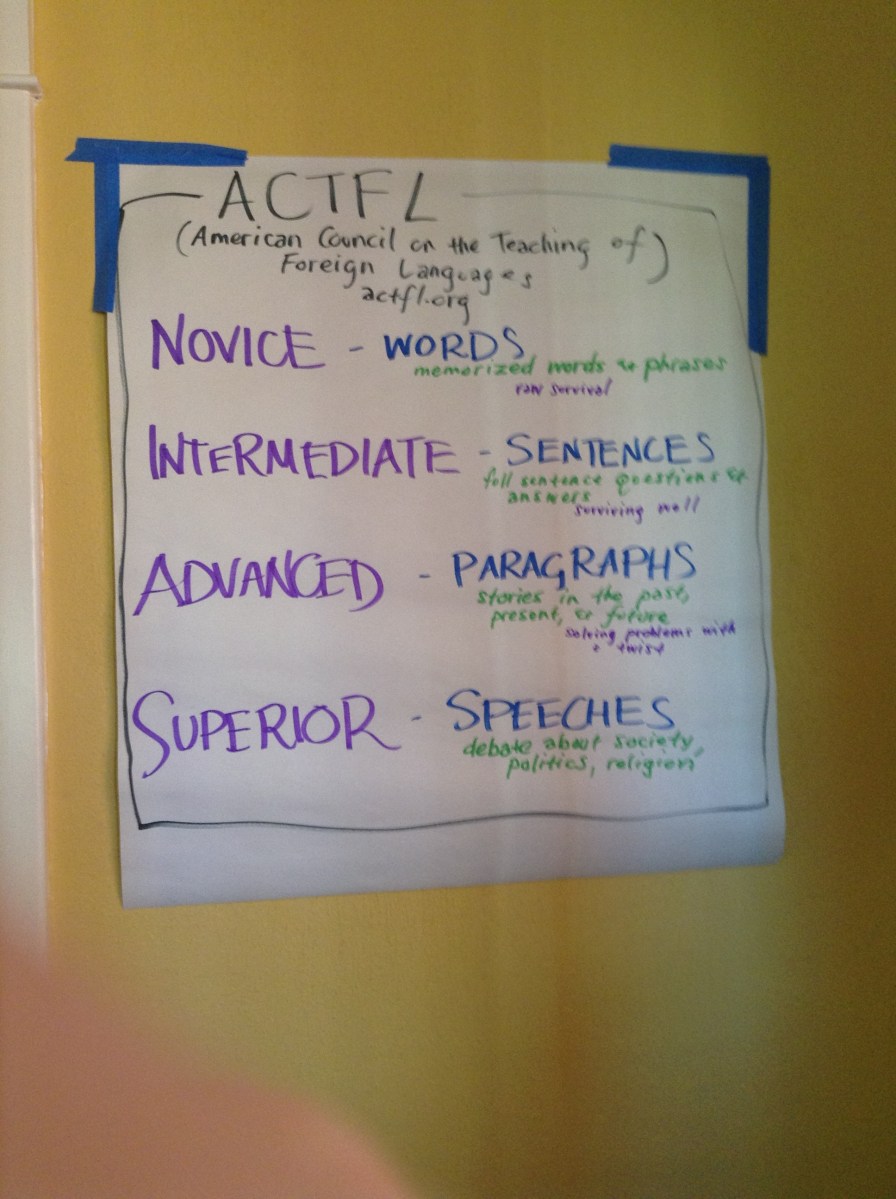 ACTFL
(American Council on the Teaching of)
Foreign Languages
actfl.org
NOVICE - WORDS
memorized words & phrases
raw survival
INTERMEDIATE - SENTENCES
full sentence questions &
answers
surviving well
ADVANCED - PARAGRAPHS
stories in the past,
present, & future
solving problems with
a twist
SUPERIOR - SPEECHES
debate about society,
politics, religion